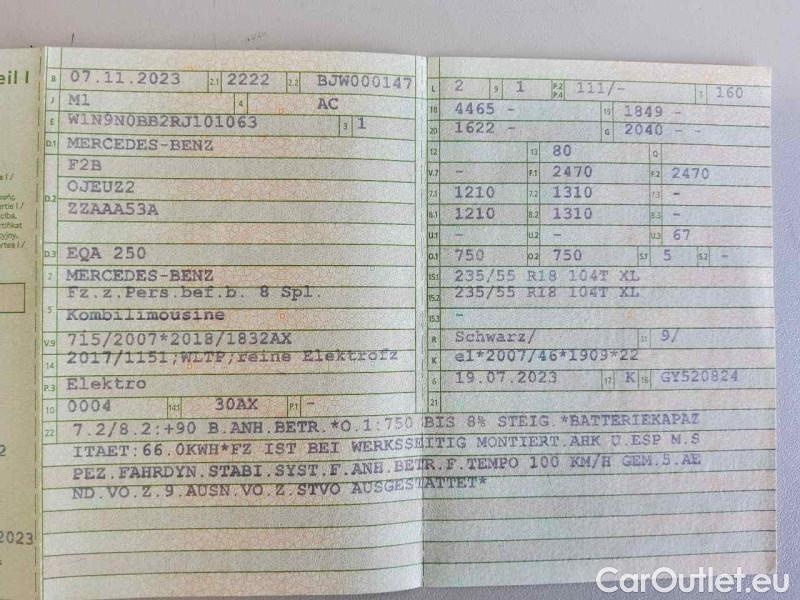 eil I
B 07.11.2023 2.1 2222 2.2 BJW000147
J M1 4 AC
E W1N9N0BB2RJ101063 3 1
D.1 MERCEDES-BENZ
F2B
D.2 OJEUZ2
ZZAAA53A
D.3 EQA 250
2 MERCEDES-BENZ
5 Fz.z.Pers.bef.b. 8 Spl.
Kombilimousine
V.9 715/2007*2018/1832AX
14 2017/1151;WLTP;reine Elektrofz
P.3 Elektro
10 0004 14.1 30AX P.1 -
L 2 9 1 P.2 P.4 111/- T 160
18 4465 - 19 1849 -
20 1622 - G 2040 - -
12 13 80 Q
V.7 - F.1 2470 F.2 2470
7.1 1210 7.2 1310 7.3 -
8.1 1210 8.2 1310 8.3 -
U.1 - U.2 - U.3 67
O.1 750 O.2 750 S.1 5 S.2 -
15.1 235/55 R18 104T XL
15.2 235/55 R18 104T XL
15.3 -
R Schwarz/ 11 9/
K e1*2007/46*1909*22
6 19.07.2023 17 K 16 GY520824
21
22 7.2/8.2:+90 B.ANH.BETR.*O.1:750 BIS 8% STEIG.*BATTERIEKAPAZ
ITAET:66.0KWH*FZ IST BEI WERKSSEITIG MONTIERT.AHK U.ESP M.S
PEZ.FAHRDYN.STABI.SYST.F.ANH.BETR.F.TEMPO 100 KM/H GEM.5.AE
ND.VO.Z.9.AUSN.VO.Z.STVO AUSGESTATTET*
2023
CarOutlet.eu